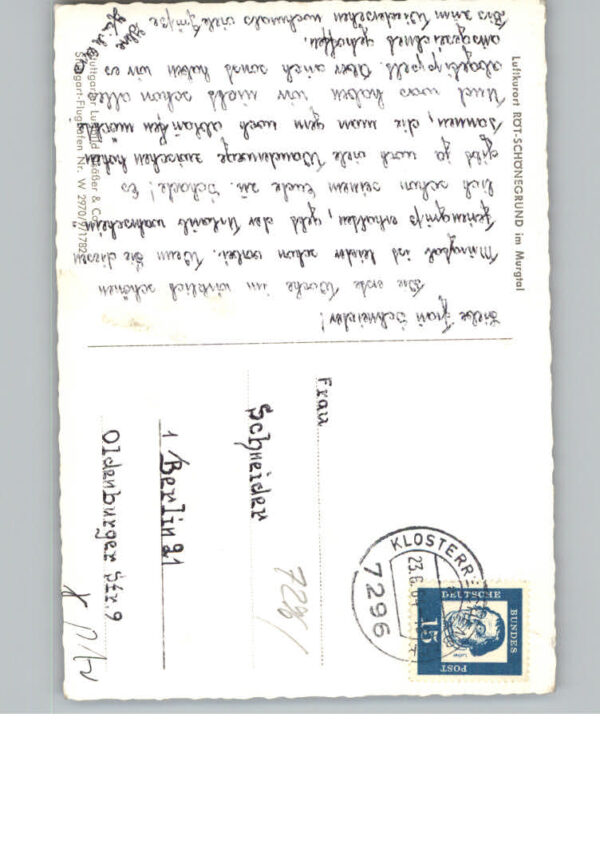 Luftkurort RÖT-SCHÖNEGRUND im Murgtal
Liebe Frau Schneider!
Die erste Woche im wirklich schönen
Murgtal ist leider schon vorbei. Wenn Sie diesen
Feriengruß erhalten, geht der Urlaub wahrschein-
lich schon seinem Ende zu. Schade! Es
gibt ja noch viele Wanderwege zwischen hohen
Tannen, die man gern noch ablaufen möchte
Und was haben wir nicht schon alles
Aber auch sonst haben wir es
ausgezeichnet getroffen.
Bis zum Wiedersehen nochmals viele Grüße
Ihre
Stuttgarter Luftbild Elsäßer & Co.
Stuttgart-Flughafen Nr. W 2970/9/1782
Frau
Schneider
1 Berlin 21
Oldenburger Str. 9
7296
KLOSTERR
23.6.64
7296
DEUTSCHE
BUNDES
POST
15
Luther